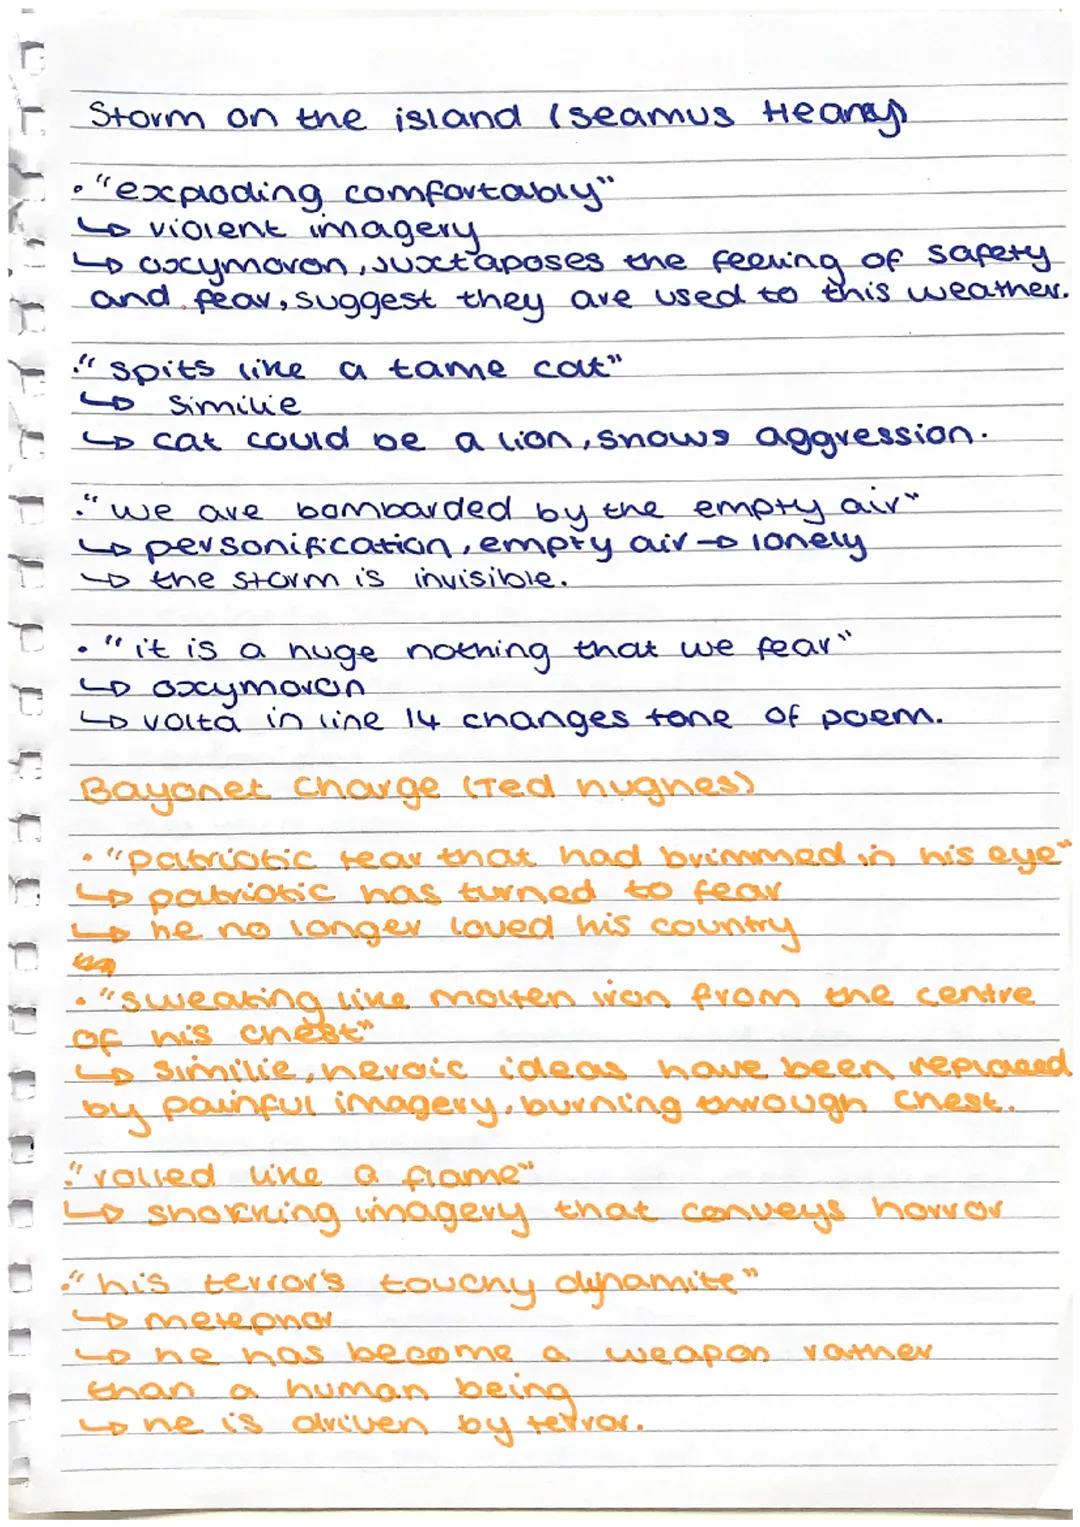 Storm on the island (Seamus Heaney)
• "exploding comfortably"
↳ violent imagery
↳ oxymoron, juxtaposes the feeling of safety
and fear, suggest they are used to this weather.
• "spits like a tame cat"
↳ similie
↳ cat could be a lion, shows aggression.
• "we are bombarded by the empty air"
↳ personification, empty air → lonely
↳ the storm is invisible.
• "it is a huge nothing that we fear"
↳ oxymoron
↳ volta in line 14 changes tone of poem.
Bayonet Charge (Ted hughes)
• "patriotic tear that had brimmed in his eye"
↳ patriotic has turned to fear
↳ he no longer loved his country
• "sweating like molten iron from the centre
of his chest"
↳ similie, heroic ideas have been replaced
by painful imagery, burning through chest.
• "rolled like a flame"
↳ shocking imagery that conveys horror
• "his terror's touchy dynamite"
↳ metephor
↳ he has become a weapon rather
than a human being
↳ he is driven by terror.